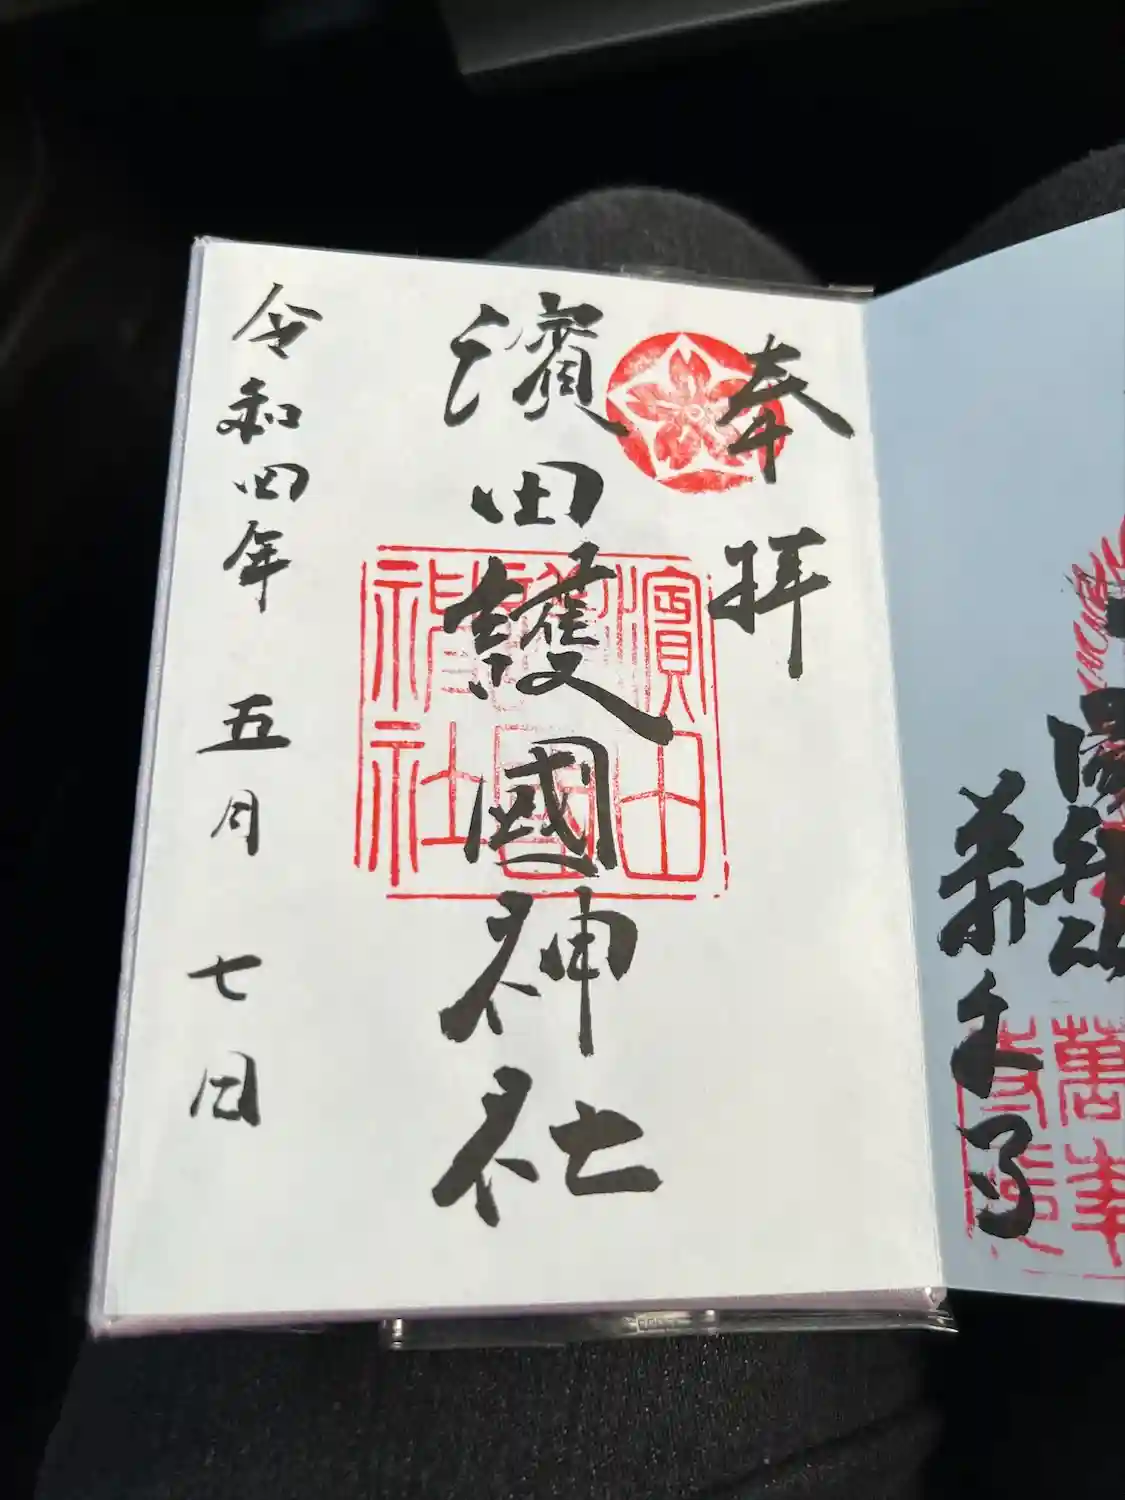 奉拝
濱田護國神社
濱田
護國
神社
令和四年 五月 七日